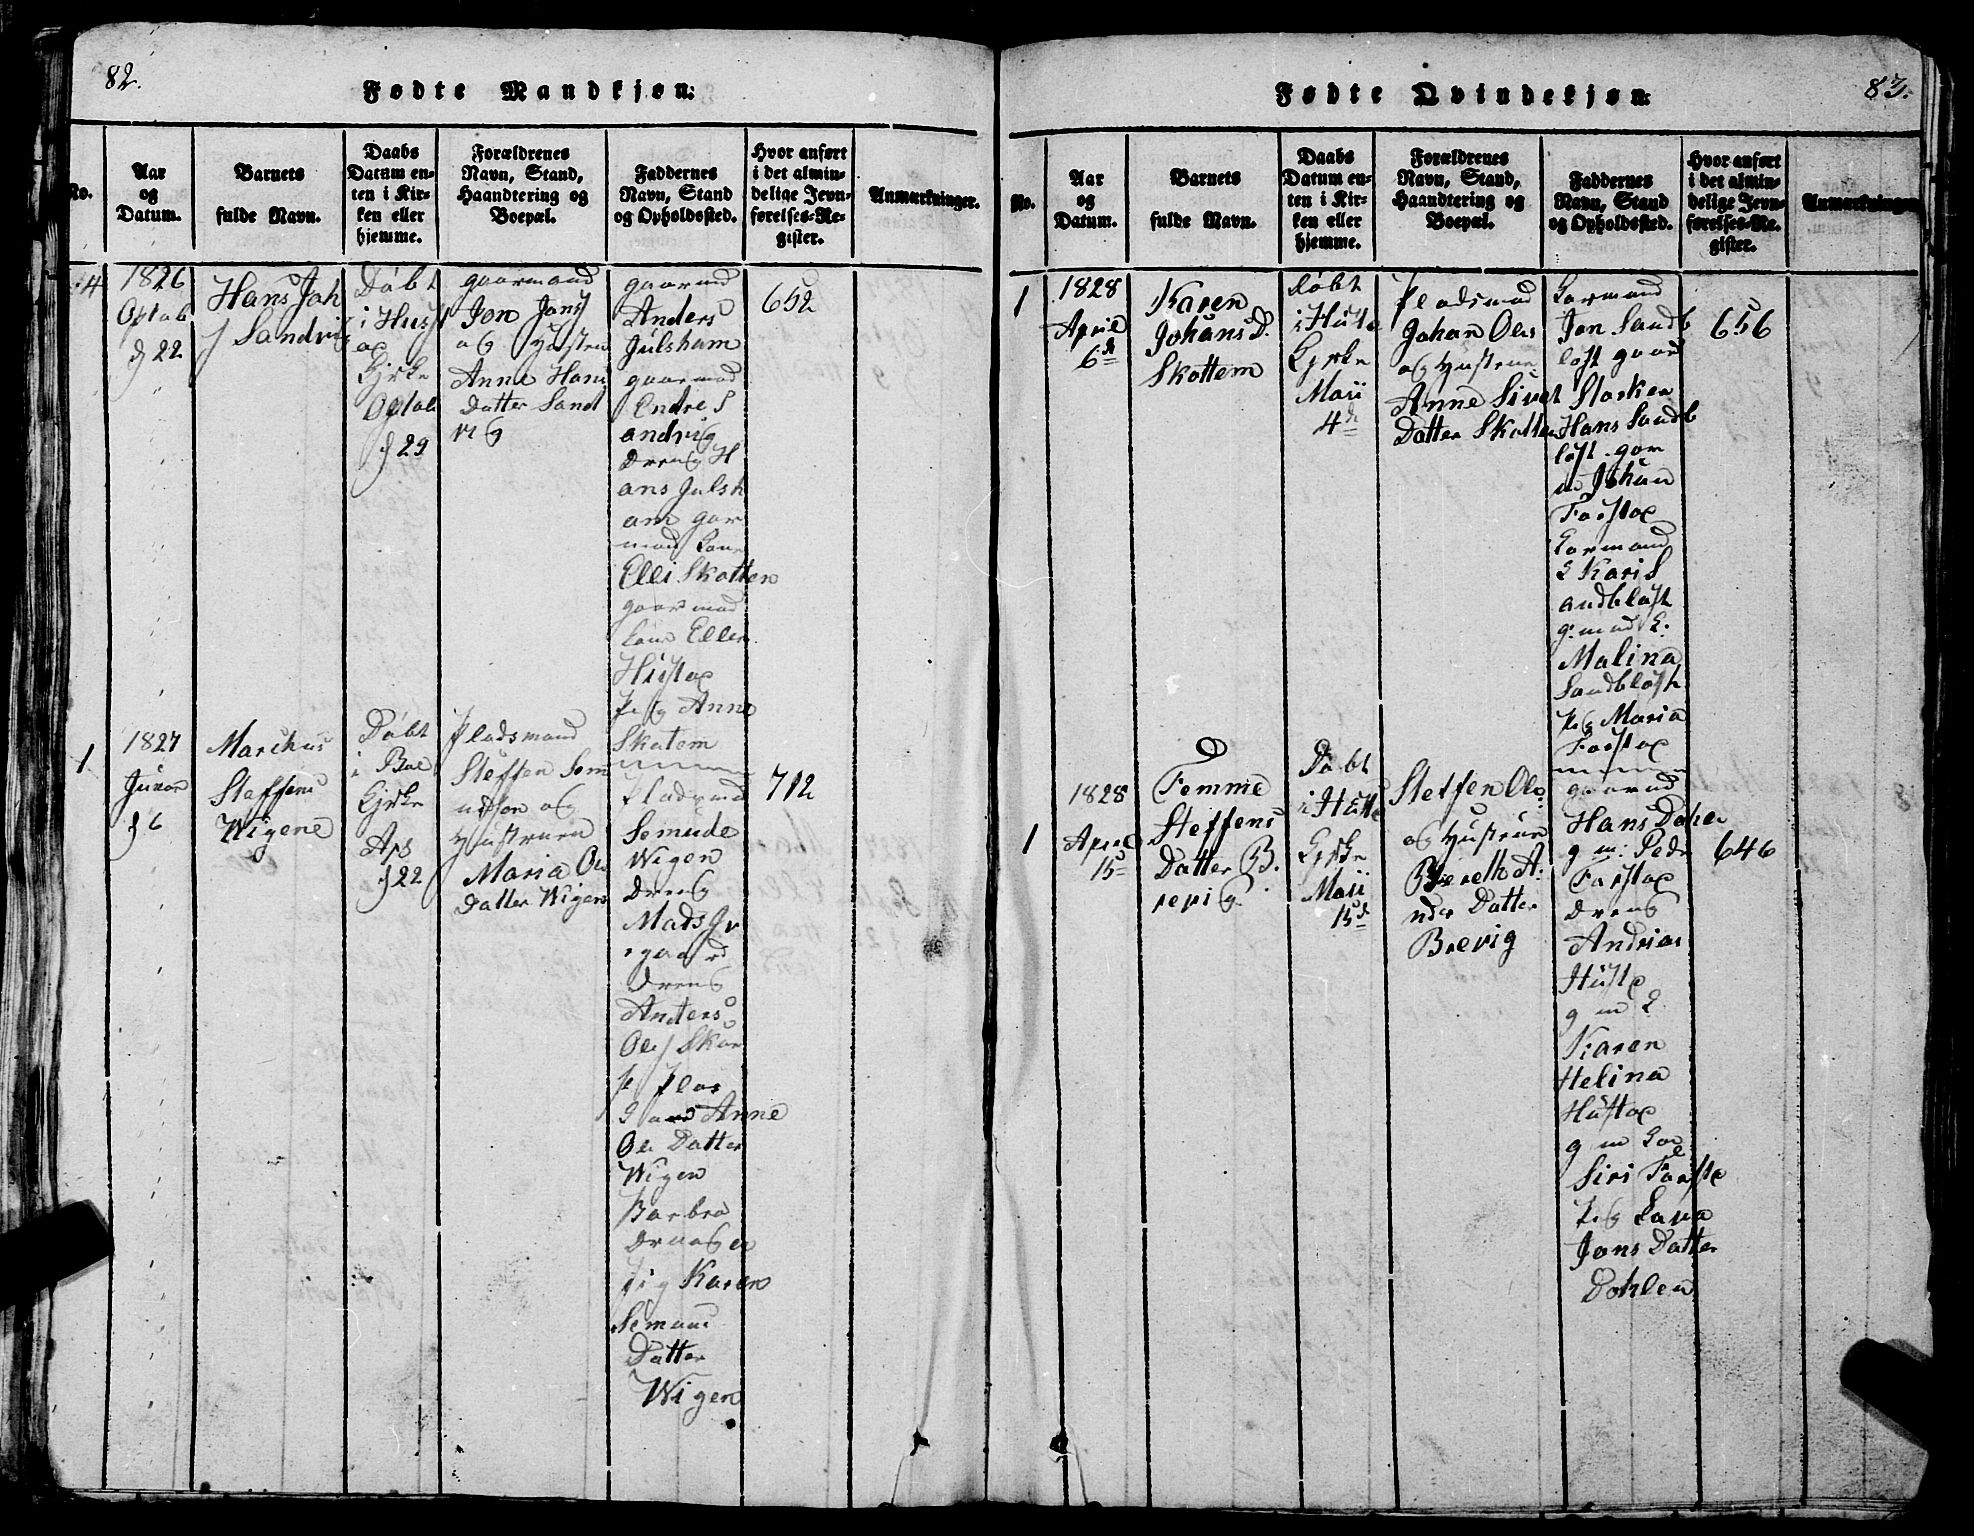 82.
Fødte Mandkjøn.
No.
Aar
og
Datum.
Barnets
fulde Navn.
Daabs
Datum en-
ten i Kir-
ken eller
hjemme.
Forældrenes
Navn, Stand,
Haandtering og
Boepæl.
Faddernes
Navn, Stand
og Opholdssted.
Hvor anført
i det almin-
delige Jevn-
førelses-Re-
gister.
Anmærkninger.
4
1826
Octob
d 22
Hans Joh
Sandvig
Døbt
i Hust
og
Kjrke
Octob
d 29
gaarmand
Jon Jons
og Hustru
Anne Hans
Datter Sand
vig
gaarmd
Anders
Julsham
gaarmad
Endre S
andvig
Dreng H
ans Julsh
am gar
mads kone
Elli Skotten
gaarmad
kone Ellen
Hustad
Pig Anne
Skotem
652
1
1827
Janvar
d 6
Marchus
Steffens
Wigene
Døbt
i Boe
Kjrke
Apr
d 22
Pladsmand
Steffen Sem
udsøn og
Hustruen
Maria Ols
Datter Wigen
Pladsmd
Semude
Wigen
Dreng
Mads
gaard
Dreng
Anders
Ols
Anne
Ole Datter
Wigen
Barbra
Karen
Semuns
Datter
Wigen
712
83.
Fødte Qvindekjøn.
No.
Aar
og
Datum.
Barnets
fulde Navn.
Daabs
Datum en-
ten i Kir-
ken eller
hjemme.
Forældrenes
Navn, Stand,
Haandtering og
Boepæl.
Faddernes
Navn, Stand
og Opholdssted.
Hvor anført
i det almin-
delige Jevn-
førelses-Re-
gister.
Anmærkninger.
1
1828
April
6d
Karen
Johans D.
Skottem
Døbt
i Huste
Kjrke
Maii
4d
Pladsmad
Johan Ols
og Hustrue
Anne Sivert
Datter Skotten
Garmand
Jon Sandb
løst gaar
Storken
Hans Sandb
løst. gar
md Johan
Farstad
Garmand
K Kari S
andbløst
g. mad K.
Malina
Sandbløst
Pig Maria
Farstad
656
1
1828
April
15
Femme
Steffens
Datter B.
revig.
Døbt
i Huste
Kjrke
Maii
15d
Steffen Ols
og Hustrue
Bereth A.
nder Datter
Brevig
gaarmd
Hans Dohle
g m: Pedr
Farstad
Dreng
Andrias
Hustd
g m K
Karen
Helina
Hustad
g m Koe
Siri Farstd
Pig Lava
Jons Datter
Dohlen
646